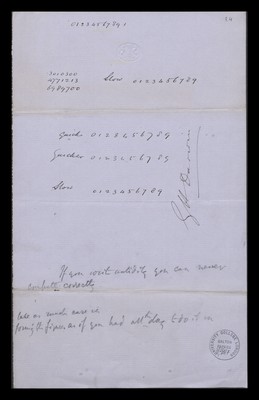 0123456789 1
3010300
4771213
6989700
Slow 0123456789
Quick 0123456789
Quicker 0123456789
Slow 0123456789
G H Darwin
If you
you can never
correctly
take as much care in
forming figures as if you had all the day to do it in